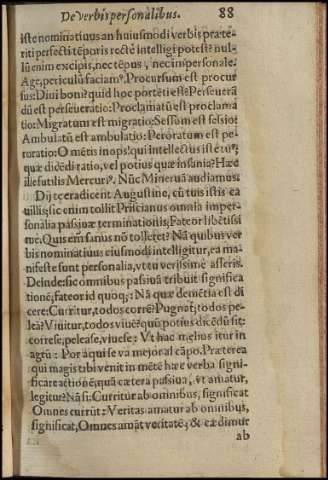 De verbis personalibus. 88
iste nominatiuus an huiusmodi verbis præte-
riti perfecti tẽporis rectè intelligi potest? nul-
lũ enim excipis, nec tẽpus, nec impersonale.
Age, periculũ faciamꝰ. Procursum est procur
sus: Dij boni quid hoc portẽti est? Perseuera
dũ est perseueratio: Proclamatũ est proclama
tio: Migratum est migratio: Sessum est sessio:
Ambulatũ est ambulatio: Peroratum est pe-
roratio: O mẽtis inops! qui intellectus iste
quæ dicẽdi ratio, vel potius quæ insania? Hæc
ille futilis Mercuriꝰ. Nũc Mineruã audiamus.
Dij te eradicent Augustine, cũ tuis istis ca
uillis, sic enim tollit Priscianus omnia imper-
sonalia passiuæ terminationis; Fateor libẽtissi
mè. Quis em̃ sanus nõ tolleret? Nã quibus ver
bis nominatiuus eiusmodi intelligitur, ea ma-
nifestè sunt personalia, vt tu verissimè asseris.
Deinde sic omnibus passiuã tribuit significa
tionẽ, fateor id quoq; : Nã quæ demẽtia est di
cere: Curritur, todos corrẽ? Pugnat̃, todos pe-
leã? Viuitur, todos viuẽ? quũ potius dicẽdũ sit:
correse, pelease, viuese: Vt hac melius itur in
agrũ: Por aqui se va mejor al cãpo. Præterea
qui magis tibi venit in mẽtẽ hæc verba signi-
ficare actionẽ, quã cætera passiua, vt amatur,
legitur? Nã si: Curritur ab omnibus, significat
Omnes currũt: Veritas amatur ab omnibus,
significat, Omnes amãt veritatẽ; & eædimur
ab